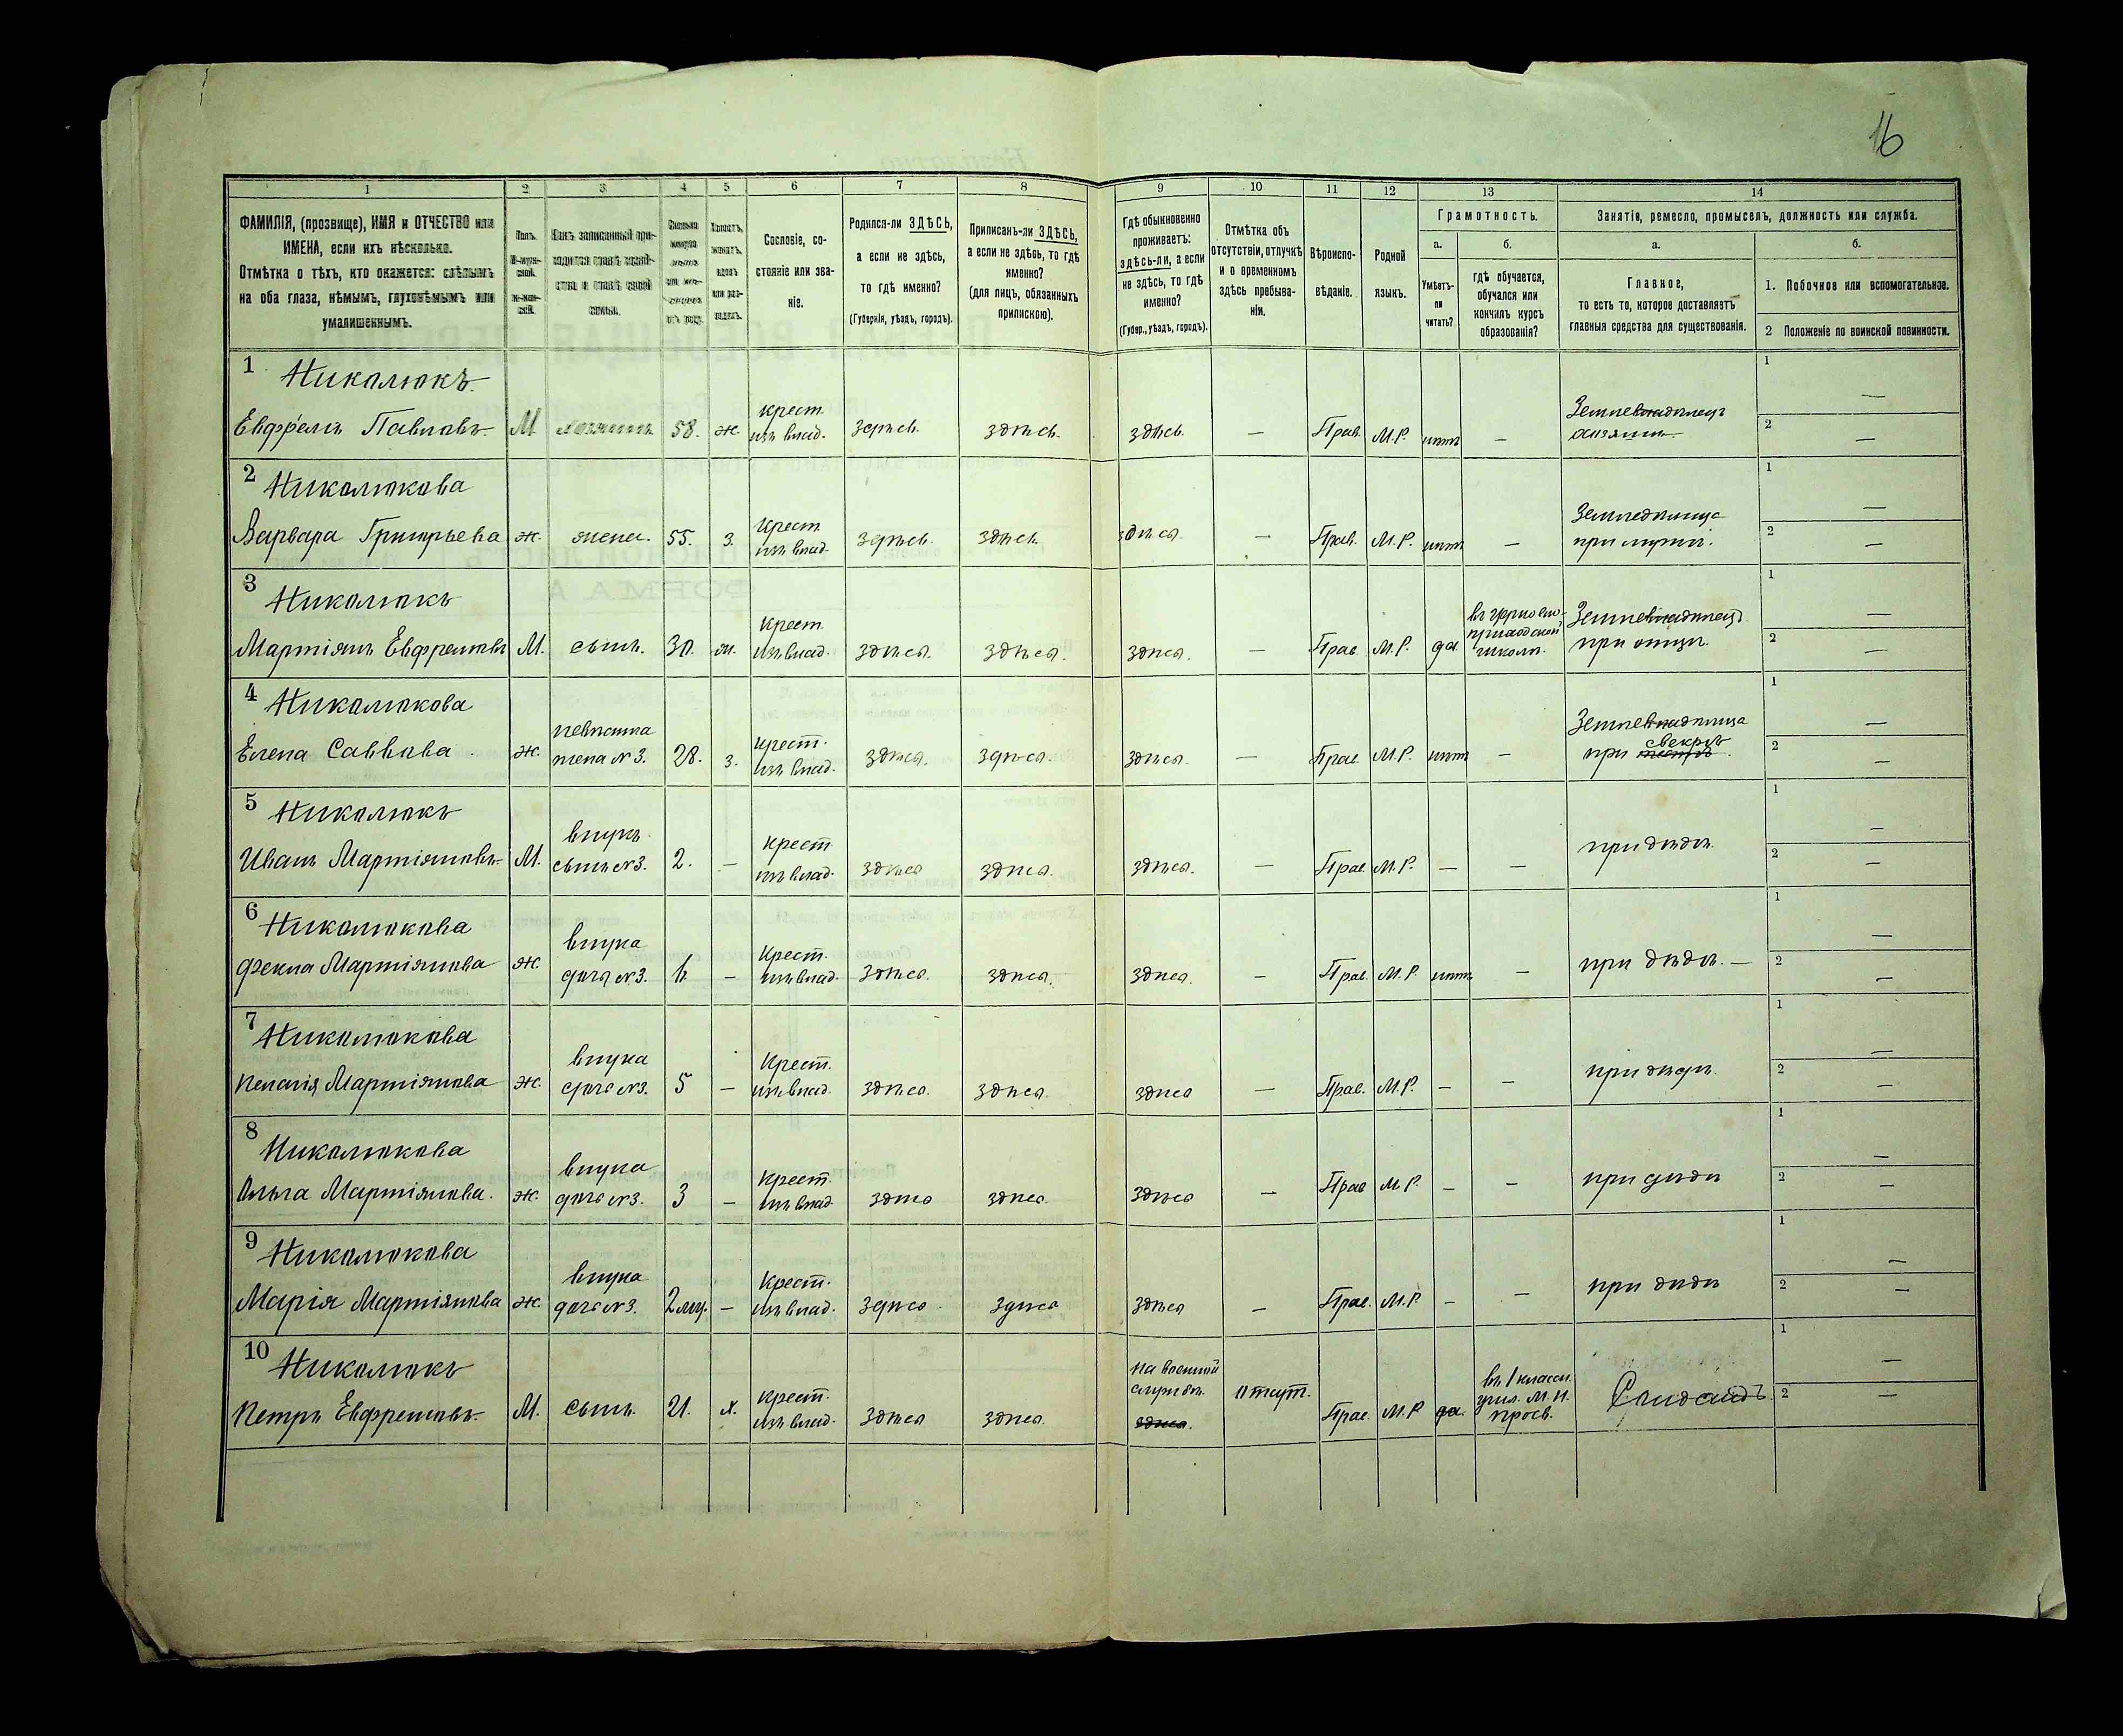 16
1 2 3 4 5 6 7 8 9 10 11 12 13 14
ФАМИЛІЯ, (прозвище), ИМЯ и ОТЧЕСТВО или
ИМЕНА, если ихъ нѣсколько.
Отмѣтка о тѣхъ, кто окажется: слѣпымъ
на оба глаза, нѣмымъ, глухонѣмымъ или
умалишеннымъ.
Полъ.
М-муж-
ской.
ж-жен-
скій.
Какъ записанный при-
ходится главѣ хозяй-
ства и главѣ своей
семьи.
Сколько
минуло
лѣтъ
или мѣ-
сяцевъ
отъ роду.
Холостъ,
женатъ,
вдовъ
или раз-
веденъ.
Сословіе, со-
стояніе или зва-
ніе.
Родился-ли ЗДѢСЬ,
а если не здѣсь,
то гдѣ именно?
(Губернія, уѣздъ, городъ).
Приписанъ-ли ЗДѢСЬ,
а если не здѣсь, то гдѣ
именно?
(для лицъ, обязанныхъ
припискою).
Гдѣ обыкновенно
проживаетъ:
здѣсь-ли, а если
не здѣсь, то гдѣ
именно?
(Губер., уѣздъ, городъ).
Отмѣтка объ
отсутствіи, отлучкѣ
и о временномъ
здѣсь пребыва-
ніи.
Вѣроиспо-
вѣданіе.
Родной
языкъ.
Грамотность.
а.
Умѣетъ-
ли
читать?
б.
гдѣ обучается,
обучался или
кончилъ курсъ
образованія?
Занятія, ремесло, промыселъ, должность или служба.
а.
Главное,
то есть то, которое доставляетъ
главныя средства для существованія.
б.
1. Побочное или вспомогательное.
2 Положеніе по воинской повинности.
1 Николюкъ
Евфремъ Павловъ М хозяинъ 58. ж. крест. изъ влад. здѣсь. здѣсь. здѣсь. — Прав. М.Р. нѣтъ — Землевладѣлецъ хозяинъ. 1 — 2 —
2 Николюкова
Варвара Григорьева ж. жена. 55. з. Крест. изъ влад. здѣсь. здѣсь. здѣсь. — Прав. М.Р. нѣтъ — Земледѣлица при мужѣ. 1 — 2 —
3 Николюкъ
Мартіянъ Евфремовъ М. сынъ. 30. ж. Крест. изъ влад. здѣсь. здѣсь. здѣсь. — Прав. М.Р. да въ церковно-приходской школѣ. Землевладѣлецъ при отцѣ. 1 — 2 —
4 Николюкова
Елена Саввова. ж. невѣстка жена №3. 28. з. Крест. изъ влад. здѣсь. здѣсь. здѣсь. — Прав. М.Р. нѣтъ — Землевладѣлица при свекрѣ. 1 — 2 —
5 Николюкъ
Иванъ Мартіяновъ М. внукъ сынъ №3. 2. — Крест. изъ влад. здѣсь здѣсь. здѣсь. — Прав. М.Р. — — при дѣдѣ. 1 — 2 —
6 Николюкова
Фекла Мартіянова ж. внука дочь №3. 6 — Крест. изъ влад. здѣсь. здѣсь. здѣсь. — Прав. М.Р. нѣтъ — при дѣдѣ. — 1 — 2 —
7 Николюкова
Пелагія Мартіянова ж. внука дочь №3. 5 — Крест. изъ влад. здѣсь. здѣсь. здѣсь — Прав. М.Р. — — при дѣдѣ. 1 — 2 —
8 Николюкова
Ольга Мартіянова. ж. внука дочь №3. 3 — Крест. изъ влад. здѣсь здѣсь. здѣсь — Прав М.Р. — — при дѣдѣ 1 — 2 —
9 Николюкова
Марія Мартіянова ж. внука дочь №3. 2 мц. — Крест. изъ влад. здѣсь. здѣсь здѣсь — Прав. М.Р. — — при дѣдѣ 1 — 2 —
10 Николюкъ
Петръ Евфремовъ М. сынъ. 21. х. Крест. изъ влад. здѣсь здѣсь. на военной службѣ. здѣсь. Прав. М.Р. да. въ 1 класс. учил. М.Н. просв. 1 — 2 —